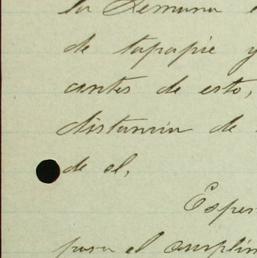 la Semana
de tapapié y
cantes de esto,
distancia de
de el,
Espe
para el cumplim